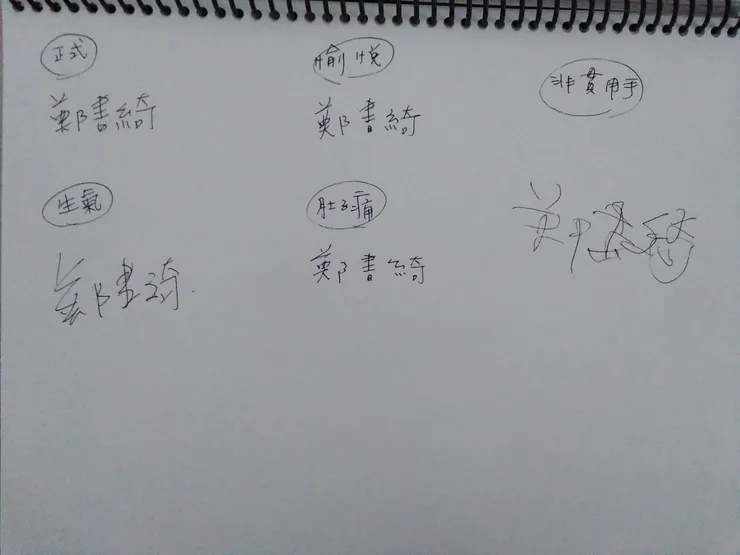 正式
鄭書綺
愉悅
鄭書綺
非貫用手
鄭書綺
生氣
鄭書綺
肚子痛
鄭書綺